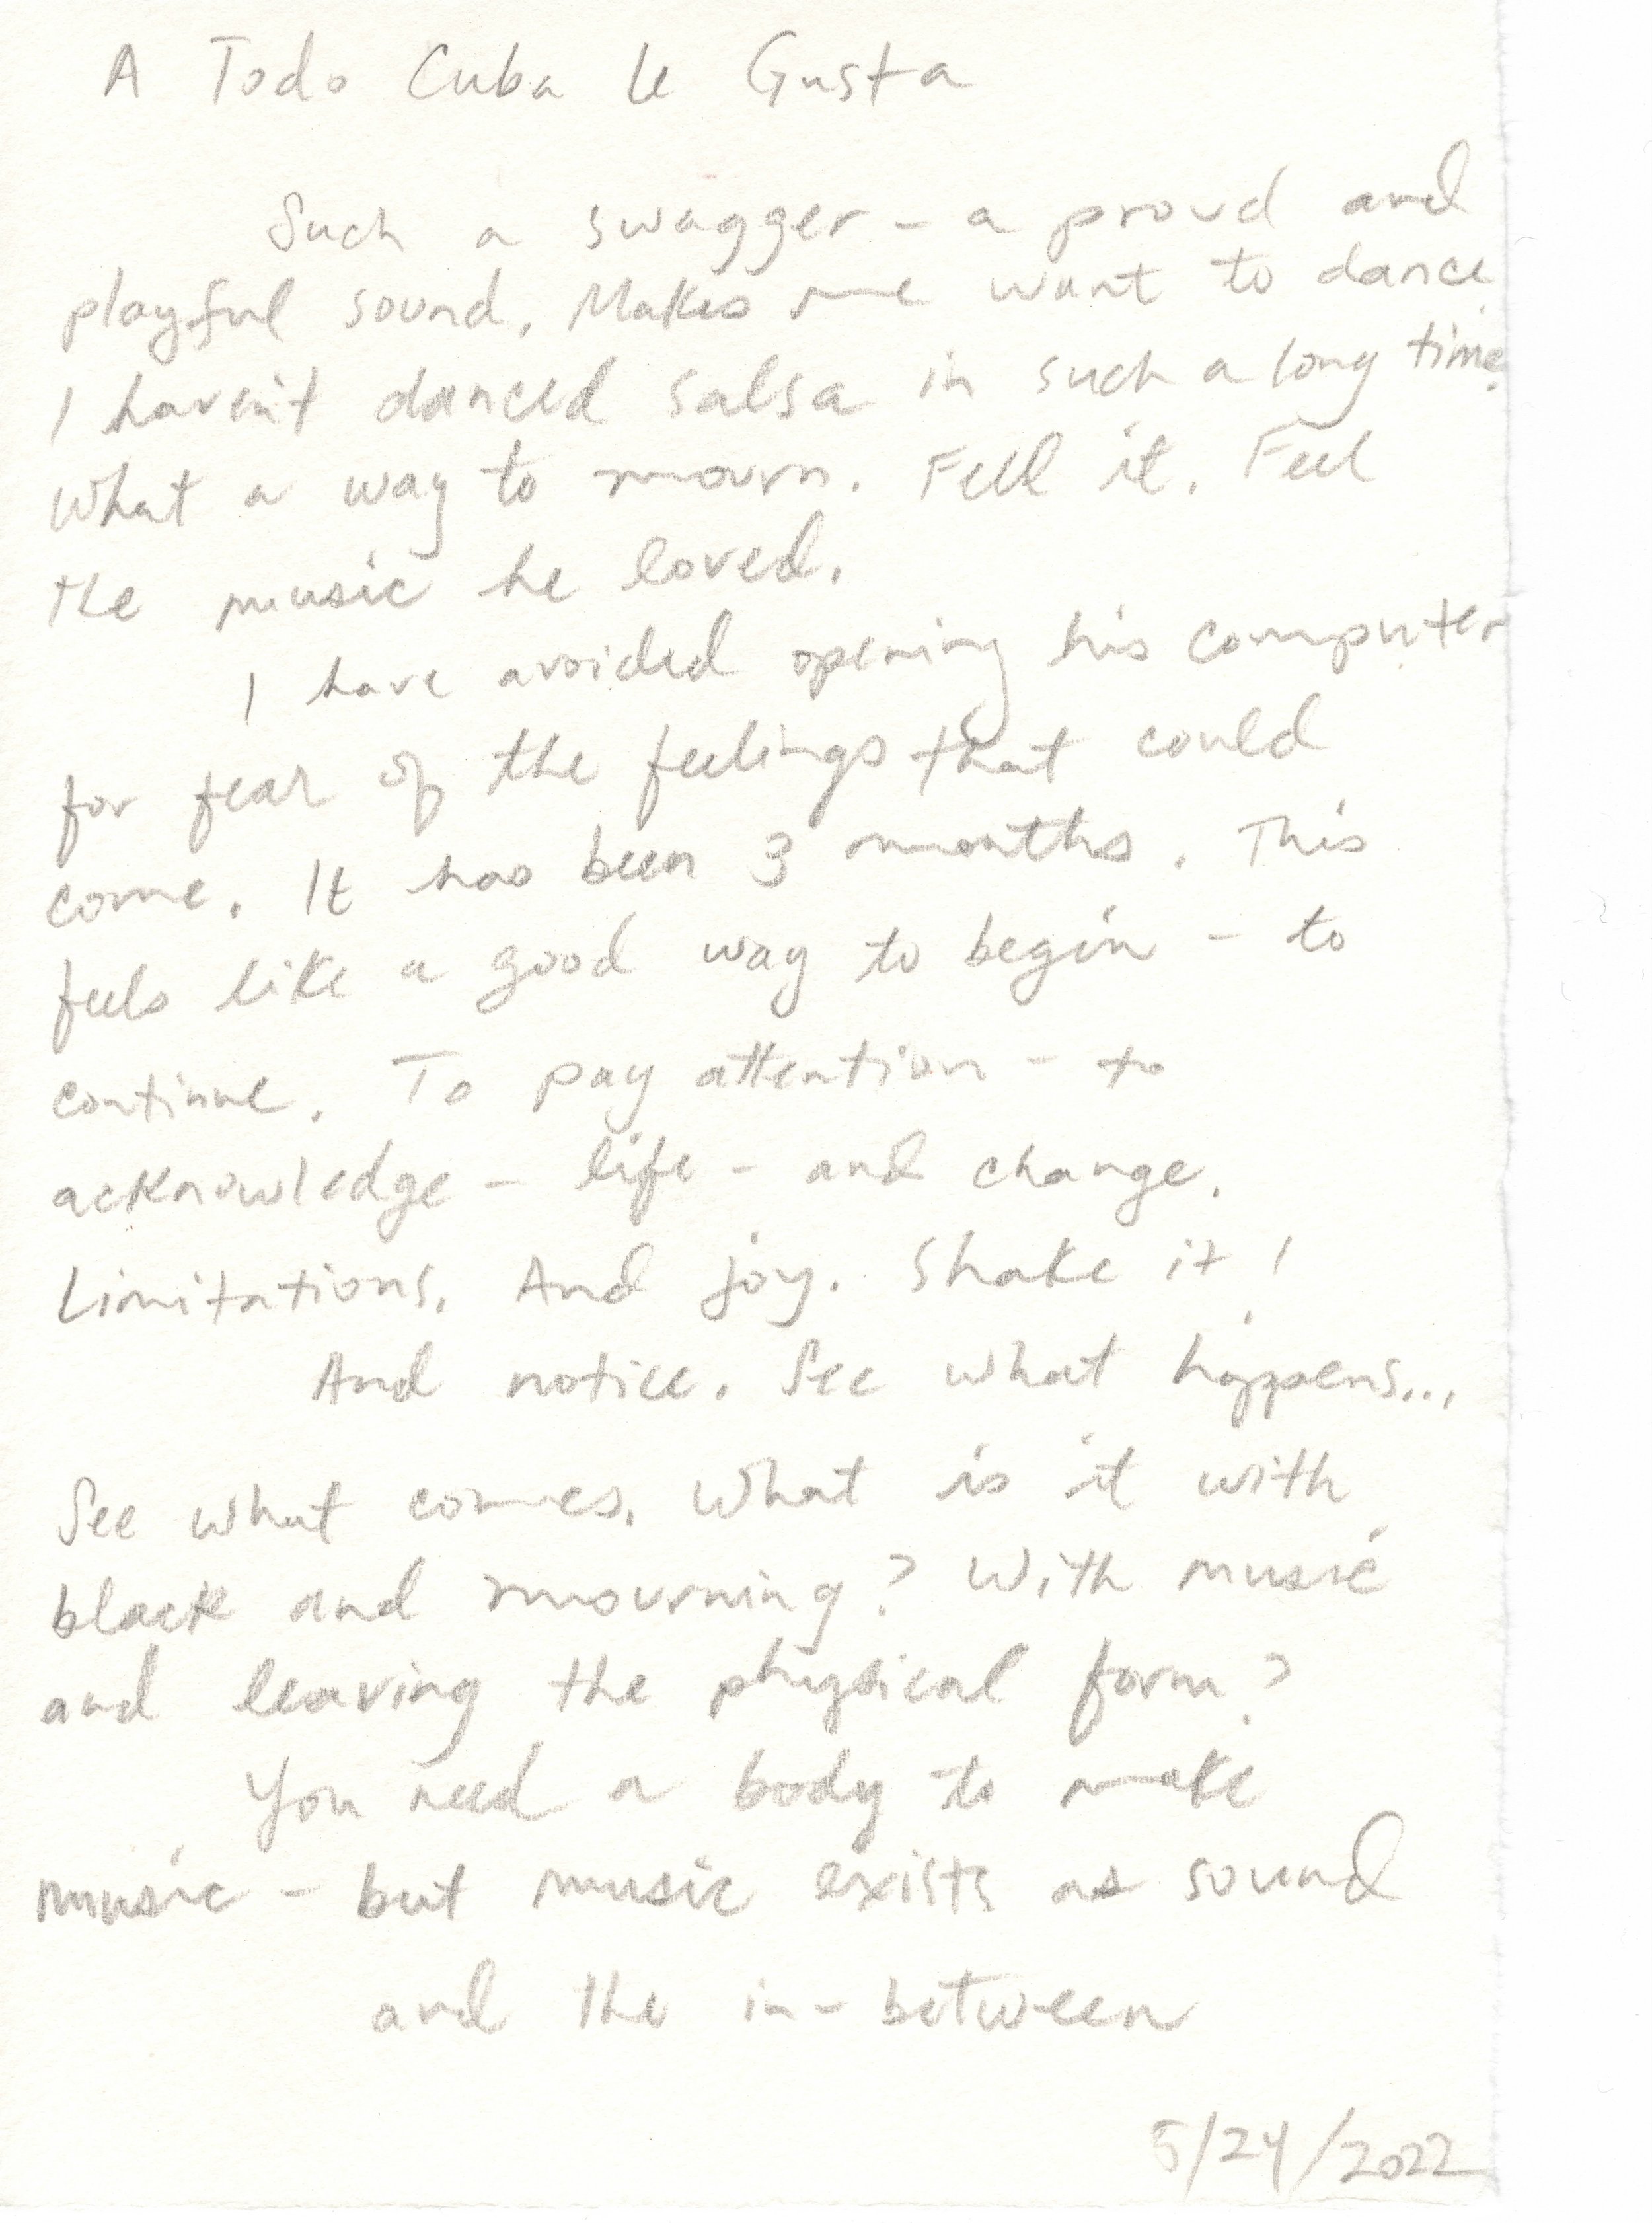 A Todo Cuba le Gusta
Such a swagger - a proud and
playful sound. Makes me want to dance.
I haven't danced salsa in such a long time.
What a way to mourn. Feel it. Feel
the music he loved.
I have avoided opening his computer
for fear of the feelings that could
come. It has been 3 months. This
feels like a good way to begin - to
continue. To pay attention - to
acknowledge - life - and change.
Limitations. And joy. Shake it!
And notice. See what happens...
See what comes. What is it with
black and mourning? With music
and leaving the physical form?
You need a body to make
music - but music exists as sound
and the in-between
5/24/2022